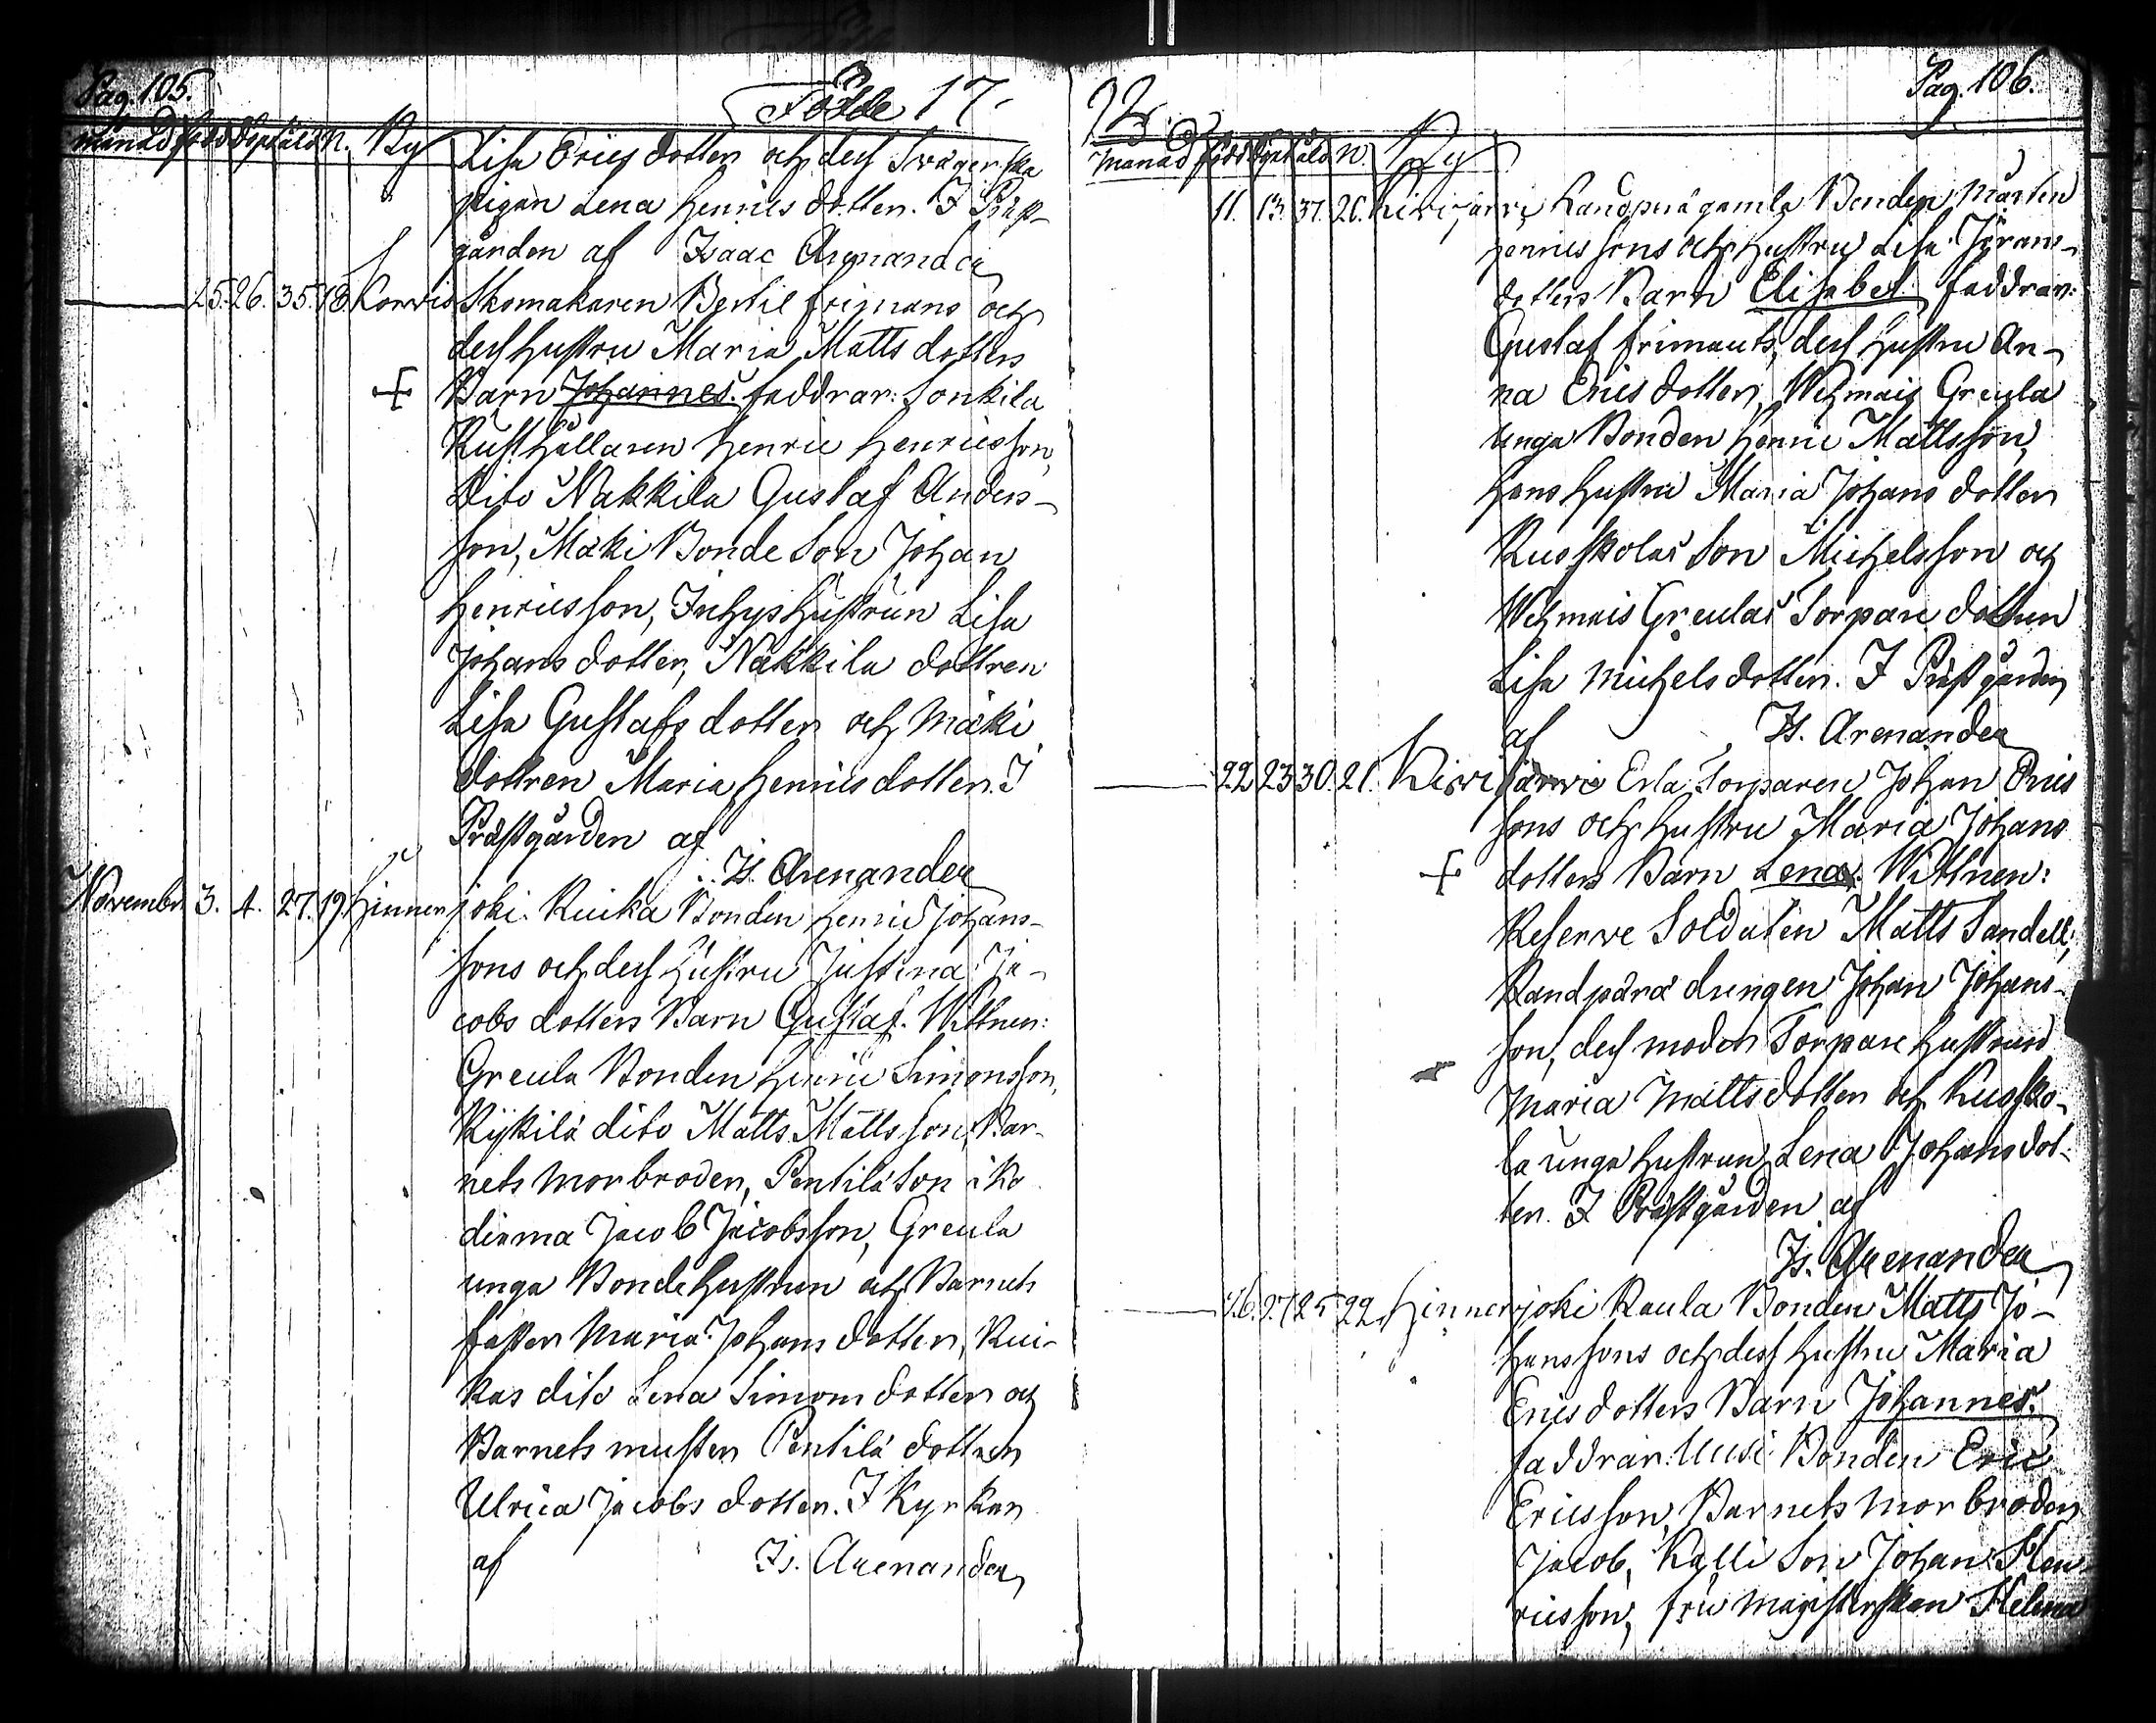 Pag. 105.
Födde 17
månad född döpt ålder N. By
Lisa Erics dotter och dess Swägerska
pigan Lena Henrics dotter. I Präst-
gården af Isaac Arenander
25. 26. 35. 18. Korvis Skomakaren Bertil Frimans och
dess hustru Maria Matts dotters
Barn Johannes. faddrar: Sonkila
Rusthållaren Henric Henricsson,
Dito Nakkila Gustaf Anders-
son, Mäki Bonde Son Johan
Henricsson, Inhyshustrun Lisa
Johans dotter, Nakkila dottren
Lisa Gustafs dotter och Mäki
dottren Maria Henrics dotter. I
Prästgården af
Is. Arenander
Novembr 3. 4. 27. 19. Hinnerjoki Ruika Bonden Henric Johans-
sons och dess hustru Justina Ja-
cobs dotters Barn Gustaf. Wittnen:
Greula Bonden Henric Simonsson,
Kykilä dito Matts Mattsson, Bar-
nets Morbroder, Pentilä Son i Ko
dirma Jacob Jacobsson, Greula
unga Bondehustrun och Barnets
faster Maria Johans dotter, Rui-
kas dito Lena Simons dotter och
Barnets muster Pentilä dottren
Ulrica Jacobs dotter. I Kyrkan
af Is. Arenander
92.
Pag. 106.
månad född döpt ålder N. By
11. 13. 37. 20. Kirijärvi Randperä gamla Bonden Mårten
Henricssons och hustru Lisa Jörans-
dotters Barn Elisabet. faddrar:
Gustaf Frimants, dess hustru An-
na Erics dotter, Wehmais Greula
unga Bonden Henric Mattsson,
hans hustru Maria Johans dotter
Ruskolas Son Michelsson och
Wehmais Greulas Torpare dottren
Lisa Michels dotter. I Prästgården
af Is. Arenander
22 23 30. 21. Kirijärvi Erla Torparen Johan Erics
sons och hustru Maria Johans
dotters Barn Lena. Wittnen:
Reserve Soldaten Matts Sandell,
Randpärä drengen Johan Johans-
son, dess moder Torpare hustrun
Maria Mattsdotter och Rusko-
la unga hustrun Lena Johansdot-
ter. I Prästgården af
Is. Arenander
26. 27 25 22 Hinnerjoki Raula Bonden Matts Jo-
hanssons och dess hustru Maria
Erics dotters Barn Johannes.
faddrar: Uusi Bonden Eric
Ericsson, Barnets Morbroder
Jacob, Kylli Son Johan Hen-
ricsson, fru Magisterskan Helena